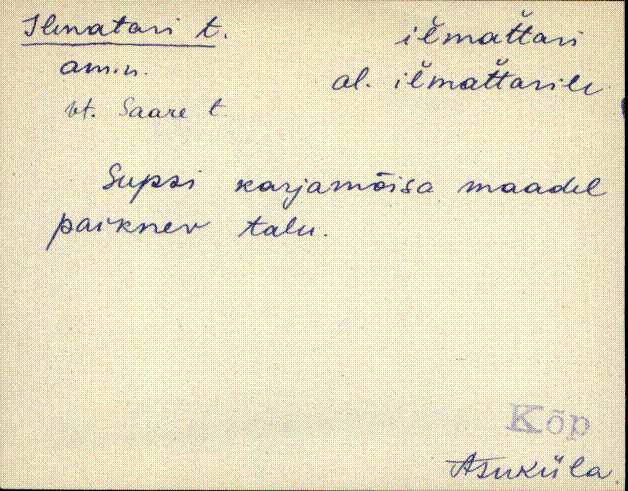 Ilmatari t. ilmattari
am.n. al. ilmattarile
vt. Saare t.
Supsi karjamõisa maadel
paiknev talu.
Kõp
Asuküla.